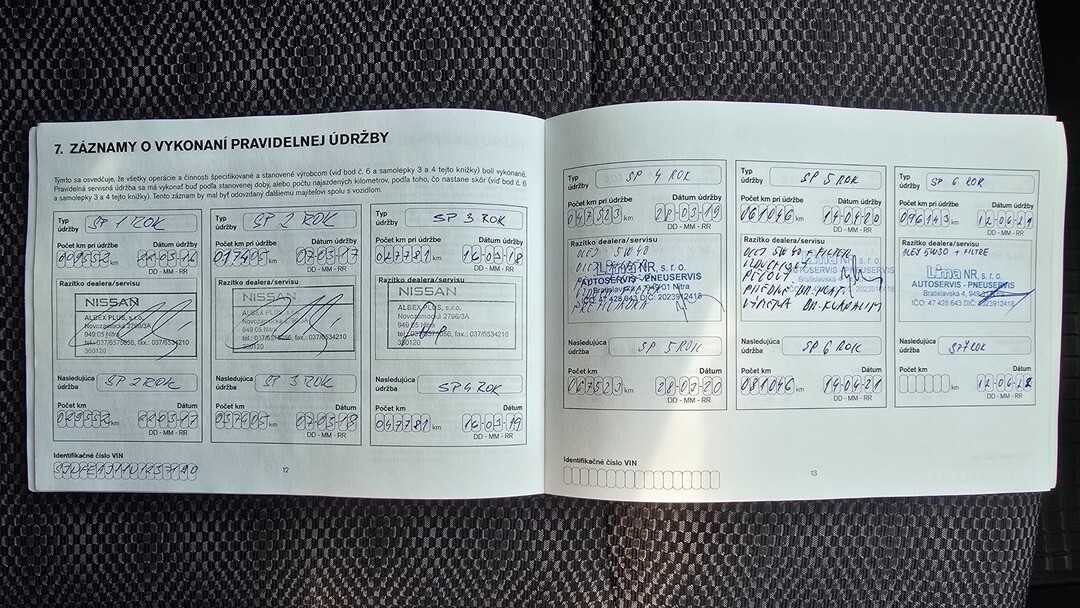 7. ZÁZNAMY O VYKONANÍ PRAVIDELNEJ ÚDRŽBY
Týmto sa osvedčuje, že všetky operácie a činnosti špecifikované a stanovené výrobcom (viď bod č. 6 a samolepky 3 a 4 tejto knižky) boli vykonané.
Pravidelná servisná údržba sa má vykonať buď podľa stanovenej doby, alebo počtu najazdených kilometrov, podľa toho, čo nastane skôr (viď bod č. 6
a samolepky 3 a 4 tejto knižky). Tento záznam by mal byť odovzdaný ďalšiemu majiteľovi spolu s vozidlom.
Typ údržby SP 1 ROK
Počet km pri údržbe Dátum údržby
km
DD - MM - RR
Razítko dealera/servisu
NISSAN
ALBEX PLUS, s.r.o.
Novozámocká 2796/3A
949 05 Nitra
360120
Nasledujúca údržba SP 2 ROK
Počet km Dátum
km
DD - MM - RR
Typ údržby SP 2 ROK
Počet km pri údržbe Dátum údržby
017405 km 07-03-17
DD - MM - RR
Razítko dealera/servisu
NISSAN
ALBEX PLUS, s.r.o.
Novozámocká 2796/3A
949 05 Nitra
360120
Nasledujúca údržba SP 3 ROK
Počet km Dátum
037405 km 07-03-18
DD - MM - RR
Typ údržby SP 3 ROK
Počet km pri údržbe Dátum údržby
027781 km 16-03-18
DD - MM - RR
Razítko dealera/servisu
NISSAN
ALBEX PLUS, s.r.o.
Novozámocká 2796/3A
949 05 Nitra
tel.: 037/6575056, fax.: 037/6534210
360120
Nasledujúca údržba SP 4 ROK
Počet km Dátum
047781 km 16-03-19
DD - MM - RR
Identifikačné číslo VIN
12
Typ údržby SP 4 ROK
Počet km pri údržbe Dátum údržby
047523 km 28-03-19
DD - MM - RR
Razítko dealera/servisu
OLEJ 5W40
Lima NR, s. r. o.
AUTOSERVIS - PNEUSERVIS
Bratislavská 4, 949 01 Nitra
IČO: 47 428 643 DIČ: 2023912418
Nasledujúca údržba SP 5 ROK
Počet km Dátum
067523 km 28-03-20
DD - MM - RR
Typ údržby SP 5 ROK
Počet km pri údržbe Dátum údržby
061046 km 14-04-20
DD - MM - RR
Razítko dealera/servisu
OLEJ 5W40 + FILTER
VÝMENA BR. KVAPALINY
Nasledujúca údržba SP 6 ROK
Počet km Dátum
081046 km 14-04-21
DD - MM - RR
Typ údržby SP 6 ROK
Počet km pri údržbe Dátum údržby
096143 km 12-06-21
DD - MM - RR
Razítko dealera/servisu
OLEJ 5W30 + FILTRE
Lima NR, s. r. o.
AUTOSERVIS - PNEUSERVIS
Bratislavská 4, 949
IČO: 47 428 643 DIČ: 2023912418
Nasledujúca údržba SP 7 ROK
Počet km Dátum
km 12-06-22
DD - MM - RR
Identifikačné číslo VIN
13